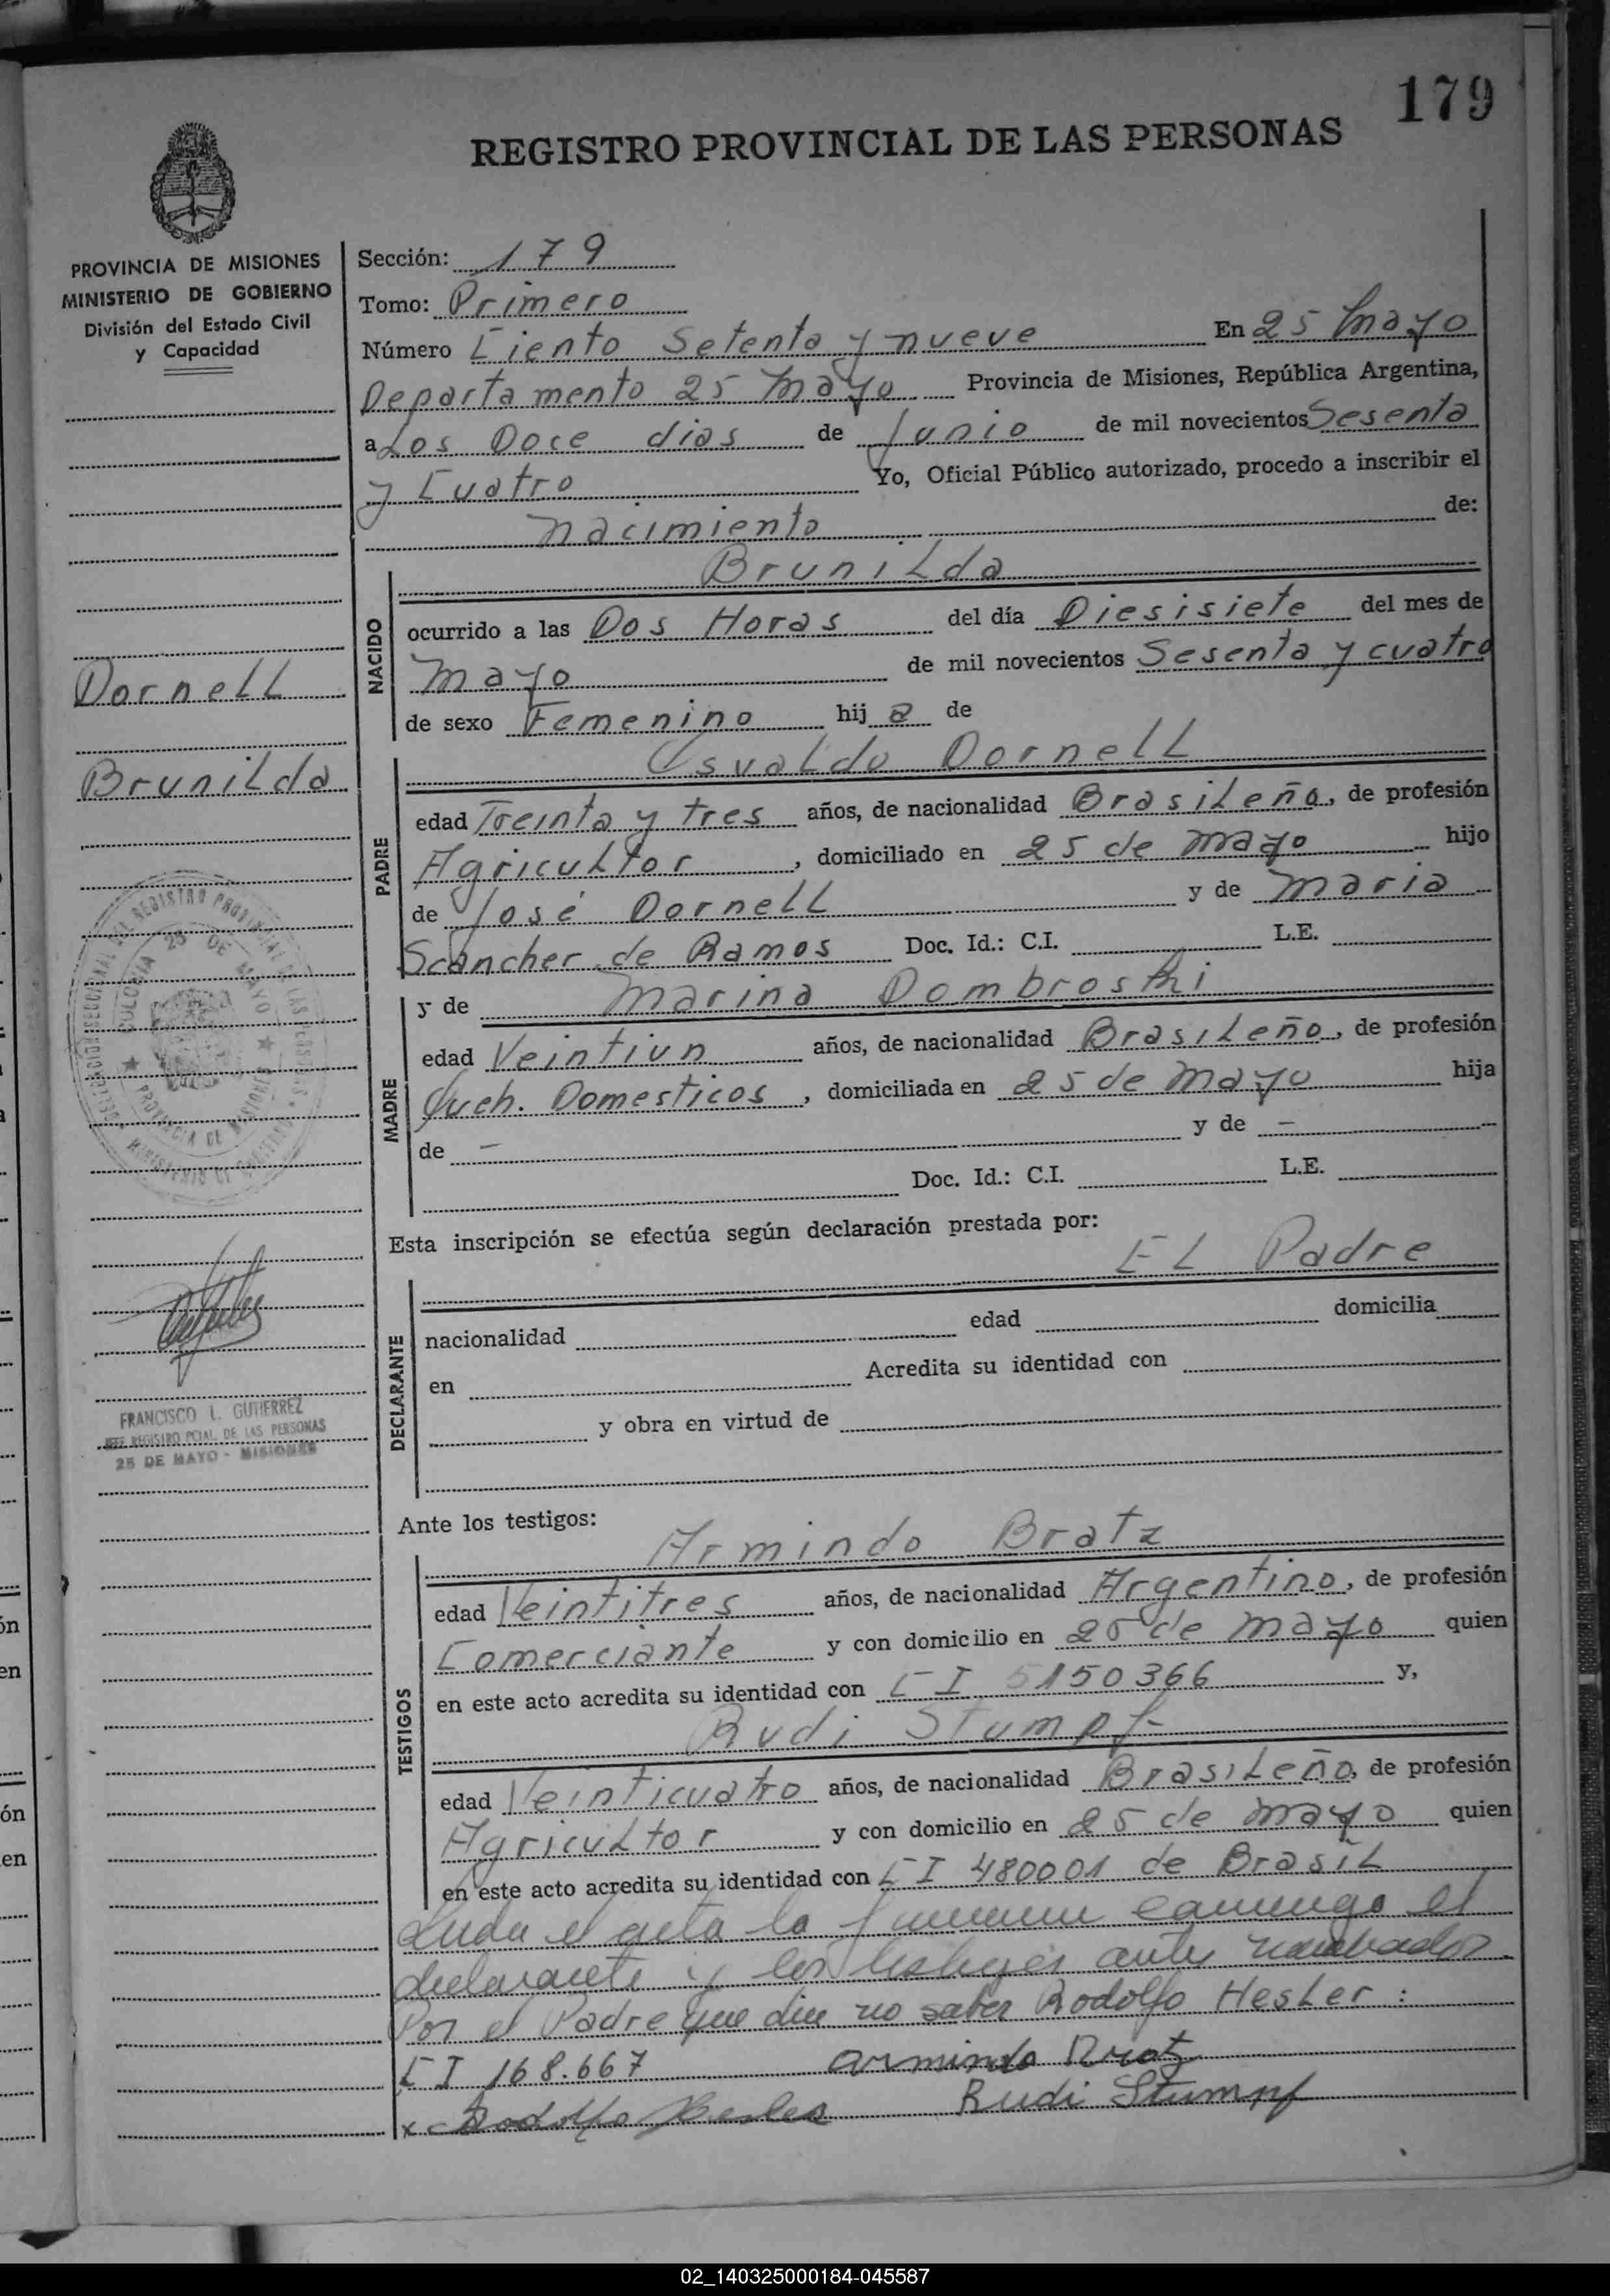 179
REGISTRO PROVINCIAL DE LAS PERSONAS
PROVINCIA DE MISIONES
MINISTERIO DE GOBIERNO
División del Estado Civil
y Capacidad
Dornell
Brunilda
FRANCISCO I. GUTIERREZ
JEFE REGISTRO PCIAL. DE LAS PERSONAS
25 DE MAYO - MISIONES
Sección: 179
Tomo: Primero
Número Ciento Setenta y nueve En 25 Mayo
Departamento 25 Mayo Provincia de Misiones, República Argentina,
a Los Doce dias de Junio de mil novecientos Sesenta
y Cuatro Yo, Oficial Público autorizado, procedo a inscribir el
nacimiento de:
Brunilda
NACIDO
ocurrido a las Dos Horas del día Diesisiete del mes de
Mayo de mil novecientos Sesenta y cuatro
de sexo Femenino hija de
Osvaldo Dornell
PADRE
edad Treinta y tres años, de nacionalidad Brasileña, de profesión
Agricultor, domiciliado en 25 de Mayo hijo
de José Dornell y de Maria
Scancher de Ramos Doc. Id.: C.I. L.E.
y de Marina Dombroski
MADRE
edad Veintiun años, de nacionalidad Brasileño, de profesión
Queh. Domesticos, domiciliada en 25 de Mayo hija
de - y de -
Doc. Id.: C.I. L.E.
Esta inscripción se efectúa según declaración prestada por:
El Padre
DECLARANTE
nacionalidad edad domicilia
en Acredita su identidad con
y obra en virtud de
Ante los testigos:
Armindo Bratz
TESTIGOS
edad Veintitres años, de nacionalidad Argentino, de profesión
Comerciante y con domicilio en 25 de Mayo quien
en este acto acredita su identidad con C I 5150366 y,
Rudi Stumpf
edad Veinticuatro años, de nacionalidad Brasileño, de profesión
Agricultor y con domicilio en 25 de Mayo quien
en este acto acredita su identidad con C I 480001 de Brasil
Leida el acta la conmigo el
declarante y los testigos antes nombrados
Por el Padre que dice no saber Rodolfo Hesler:
C I 168.667 Armindo Bratz
x Rodolfo Hesler Rudi Stumpf
02_140325000184-045587